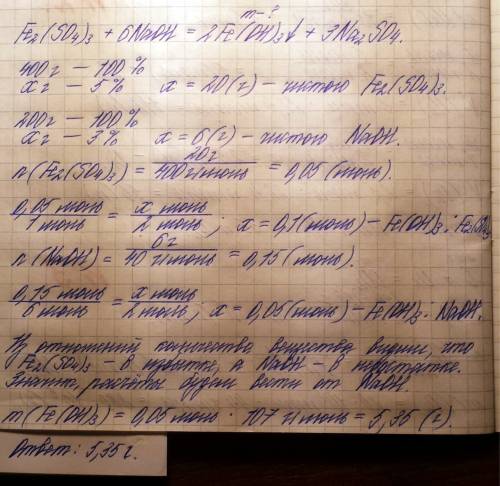 m-?
Fe₂(SO₄)₃ + 6NaOH = 2Fe(OH)₃↓ + 3Na₂SO₄.
400 г — 100 %
x г — 5 % x = 20 (г) – чистого Fe₂(SO₄)₃.
200 г — 100 %
x г — 3 % x = 6 (г) – чистого NaOH.
n(Fe₂(SO₄)₃) = 20 г / 400 г/моль = 0,05 (моль).
0,05 моль / 1 моль = x моль / 2 моль ; x = 0,1 (моль) – Fe(OH)₃. Fe₂(SO₄)₃
n(NaOH) = 6 г / 40 г/моль = 0,15 (моль).
0,15 моль / 6 моль = x моль / 2 моль ; x = 0,05 (моль) – Fe(OH)₃. NaOH.
Из отношений количества вещества видим, что
Fe₂(SO₄)₃ – в избытке, а NaOH – в недостатке.
Значит, расчёты будем вести от NaOH.
m(Fe(OH)₃) = 0,05 моль · 107 г/моль = 5,35 (г).
Ответ: 5,35 г.